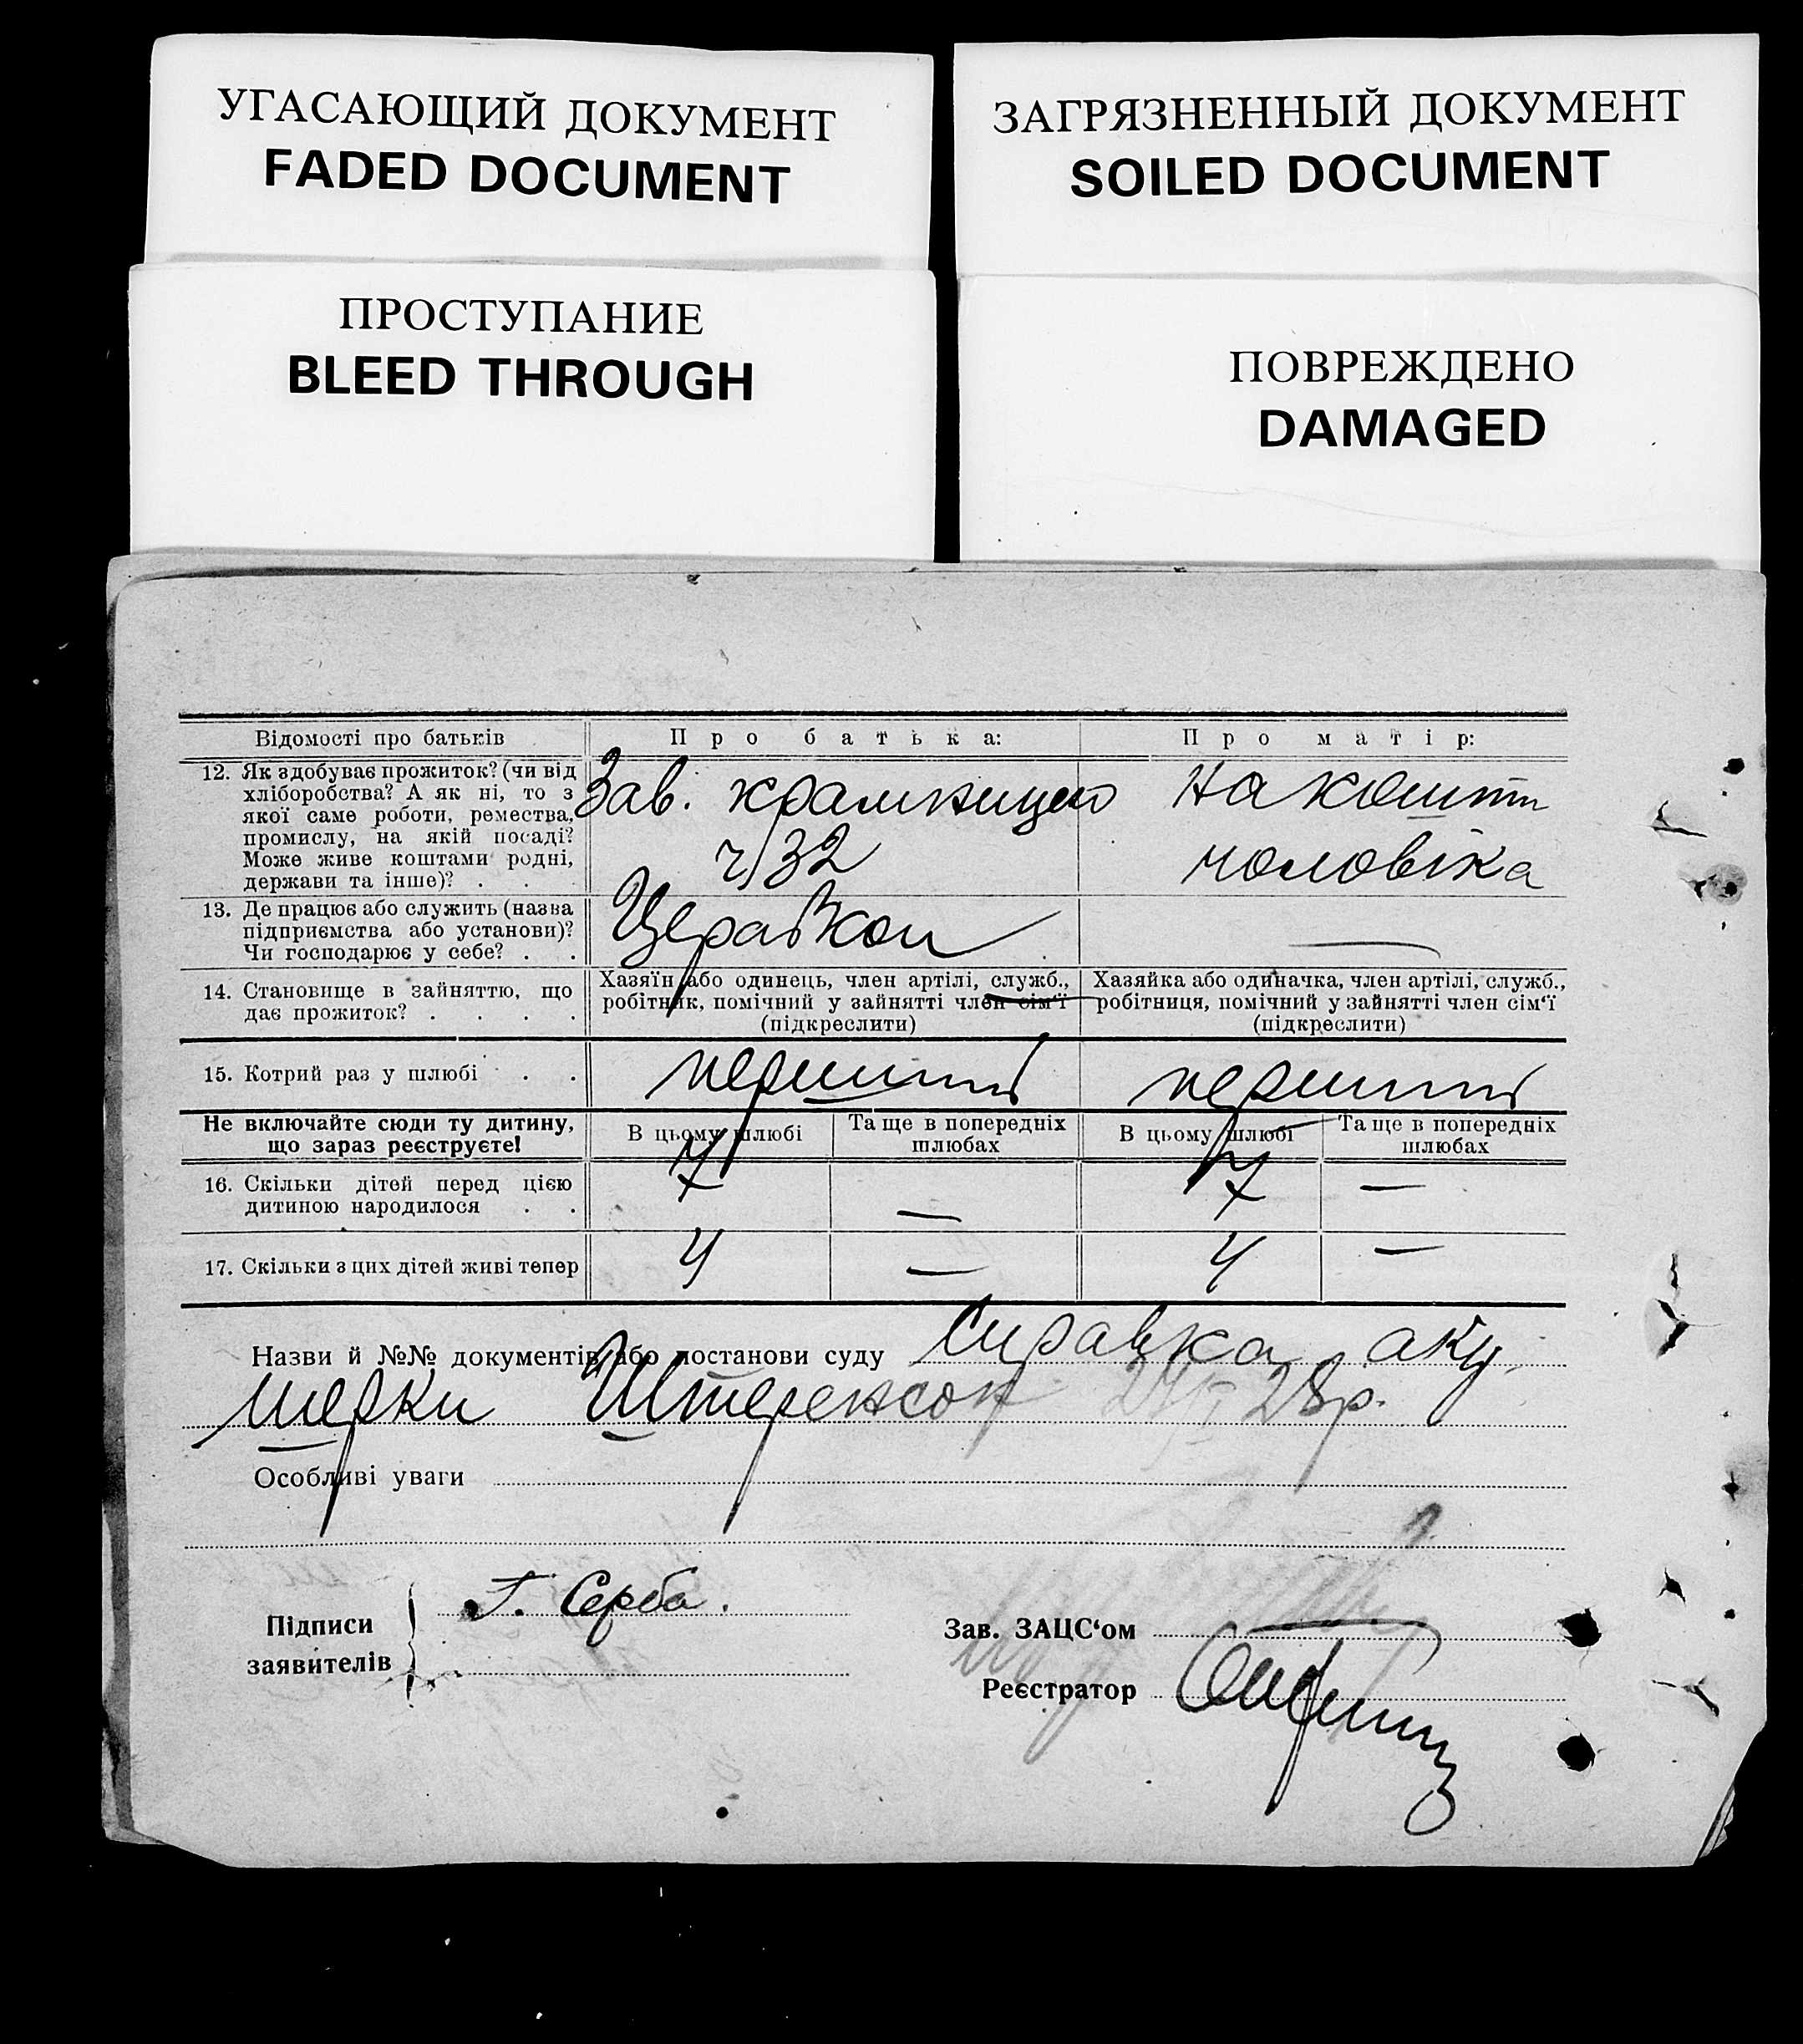 УГАСАЮЩИЙ ДОКУМЕНТ
FADED DOCUMENT
ЗАГРЯЗНЕННЫЙ ДОКУМЕНТ
SOILED DOCUMENT
ПРОСТУПАНИЕ
BLEED THROUGH
ПОВРЕЖДЕНО
DAMAGED
Відомості про батьків
Про батька:
Про матір:
12. Як здобуває прожиток? (чи від
хліборобства? А як ні, то з
якої саме роботи, ремества,
промислу, на якій посаді?
Може живе коштами родні,
держави та інше)? . . .
Зав. крамницею
ч/32
на кошти
чоловіка
13. Де працює або служить (назва
підприємства або установи)?
Чи господарює у себе? . .
Церабкоп
—
14. Становище в зайняттю, що
дає прожиток? . . . .
Хазяїн або одинець, член артілі, служб.,
робітник, помічний у зайнятті член сім'ї
(підкреслити)
Хазяйка або одиначка, член артілі, служб.,
робітниця, помічний у зайнятті член сім'ї
(підкреслити)
15. Котрий раз у шлюбі . .
перший
перший
Не включайте сюди ту дитину,
що зараз реєструєте!
В цьому шлюбі
Та ще в попередніх
шлюбах
В цьому шлюбі
Та ще в попередніх
шлюбах
16. Скільки дітей перед цією
дитиною народилося . .
7
—
7
—
17. Скільки з цих дітей живі тепер
4
—
4
—
Назви й №№ документів або постанови суду Справка аку
шерки Штеренсон 28р.
Особливі уваги
Підписи
заявителів
Г. Серба.
Зав. ЗАЦС‘ом
Реєстратор